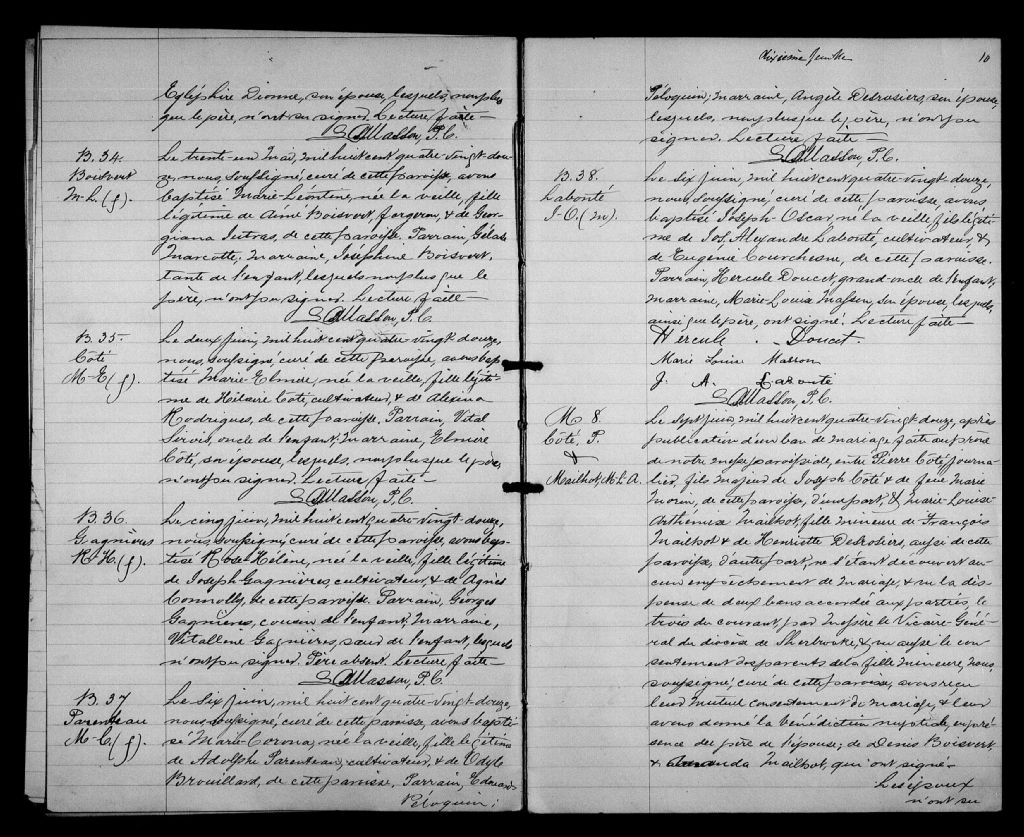 Exléphire Dionne, son épouse, lesquels, non plus
que le père, n'ont su signer. Lecture faite
Masson, P.C.
B. 34.
Boisvert
M-L. (f)
Le trente-un Mai, mil huit cent quatre-vingt-dou-
ze, nous, soussigné, curé de cette paroisse, avons
baptisé Marie-Léontine, née la veille, fille
légitime de Aimé Boisvert, forgeron, & de Geor-
giana Jutras, de cette paroisse. Parrain, Gélase
Marcotte, marraine, Joséphine Boisvert,
tante de l'enfant, lesquels non plus que le
père, n'ont pu signer. Lecture faite
Masson, P.C.
B. 35.
Côté
M-E (f).
Le deux juin, mil huit cent quatre-vingt douze,
nous, soussigné, curé de cette paroisse, avons bap-
tisé Marie-Elmire, née la veille, fille légiti-
me de Hilaire Côté, cultivateur, & de Alexina
Rodrigues, de cette paroisse. Parrain, Vital
oncle de l'enfant, marraine, Elmire
Côté, son épouse, lesquels, non plus que le père,
n'ont pu signer. Lecture faite
Masson, P.C.
B. 36
Gagnières
R-H. (f).
Le cinq juin, mil huit cent quatre-vingt-douze,
nous, soussigné, curé de cette paroisse, avons bap-
tisé Rose-Hélène, née la veille, fille légitime
de Joseph Gagnières, cultivateur, & de Agnès
Connolly, de cette paroisse. Parrain, Georges
Gagnières, cousin de l'enfant, marraine,
Vitalline Gagnières, sœur de l'enfant, lesquels
n'ont pu signer. Père absent. Lecture faite
Masson, P.C.
B. 37
Parenteau
M-C. (f).
Le Six juin, mil huit cent quatre-vingt douze,
nous soussigné, curé de cette paroisse, avons bapti-
sé Marie-Corona, née la veille, fille légitime
de Adolphe Parenteau, cultivateur, & de Odyle
Brouillard, de cette paroisse, Parrain, Edouard
Péloquin;
dixième feuille
10
Péloquin; marraine, Angèle Desrosiers, son épouse,
lesquels, non plus que le père, n'ont pu
signer. Lecture faite
Masson, P.C.
B. 38.
Labonté
J-O. (m).
Le Six juin, mil huit cent quatre-vingt douze,
nous, soussigné, curé de cette paroisse, avons
baptisé Joseph-Oscar, né la veille, fils légiti-
me de Jos. Alexandre Labonté, cultivateur, &
de Eugénie Courchesne, de cette paroisse.
Parrain, Hercule Doucet, grand-oncle de l'enfant,
marraine, Marie-Louise Masson, son épouse, lesquels,
ainsi que le père, ont signé. Lecture faite
Hercule Doucet.
Marie Louise Masson
J. A. Labonté
Masson, P.C.
M 8.
Côté, P.
&
Mailhot, M-L-A.
Le Sept juin, mil huit cent quatre-vingt douze, après
publication d'un ban de mariage faite au prône
de notre messe paroissiale, entre Pierre Côté, journa-
lier, fils majeur de Joseph Côté & de feue Marie
Morin, de cette paroisse, d'une part, & Marie-Louise-
Arthémise Mailhot, fille mineure de François
Mailhot & de Henriette Desrosiers, aussi de cette
paroisse, d'autre part, ne s'étant découvert au-
cun empêchement de mariage, & vu la dis-
pense de deux bans accordée aux parties, le
trois du courant, par Messire le Vicaire Géné-
ral du diocèse de Sherbrooke, & vu aussi le con-
sentement des parents de la fille mineure, nous,
soussigné, curé de cette paroisse, avons reçu
leur mutuel consentement de mariage, & leur
avons donné la bénédiction nuptiale, en pré-
sence du père de l'épouse, de Denis Boisvert
& Amanda Mailhot, qui ont signé.
Les époux
n'ont su